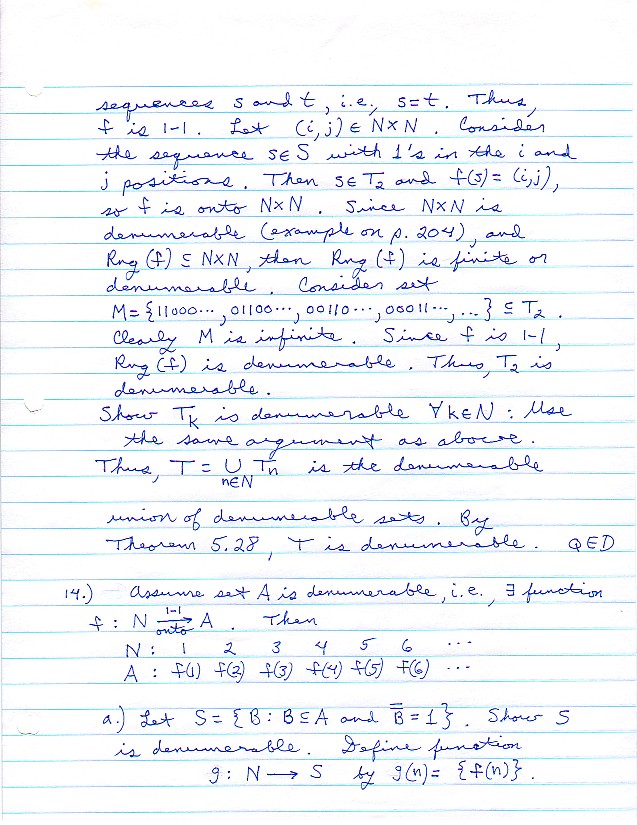 sequences s and t, i.e., s=t. Thus,
f is 1-1. Let (i,j) ∈ N×N. Consider
the sequence s∈S with 1's in the i and
j positions. Then s∈T₂ and f(s)=(i,j),
so f is onto N×N. Since N×N is
denumerable (example on p. 204), and
Rng (f) ⊆ N×N, then Rng (f) is finite or
denumerable. Consider set
M={11000···, 01100···, 00110···, 00011···, ...} ⊆ T₂.
Clearly M is infinite. Since f is 1-1,
Rng (f) is denumerable. Thus, T₂ is
denumerable.
Show Tₖ is denumerable ∀k∈N : Use
the same argument as above.
Thus, T = ∪ Tₙ is the denumerable
n∈N
union of denumerable sets. By
Theorem 5.28, T is denumerable. QED
14.) Assume set A is denumerable, i.e., ∃ function
f : N 1-1→ onto A. Then
N : 1 2 3 4 5 6 ···
A : f(1) f(2) f(3) f(4) f(5) f(6) ···
a.) Let S = {B : B⊆A and B̿ = 1}. Show S
is denumerable. Define function
g : N → S by g(n) = {f(n)}.